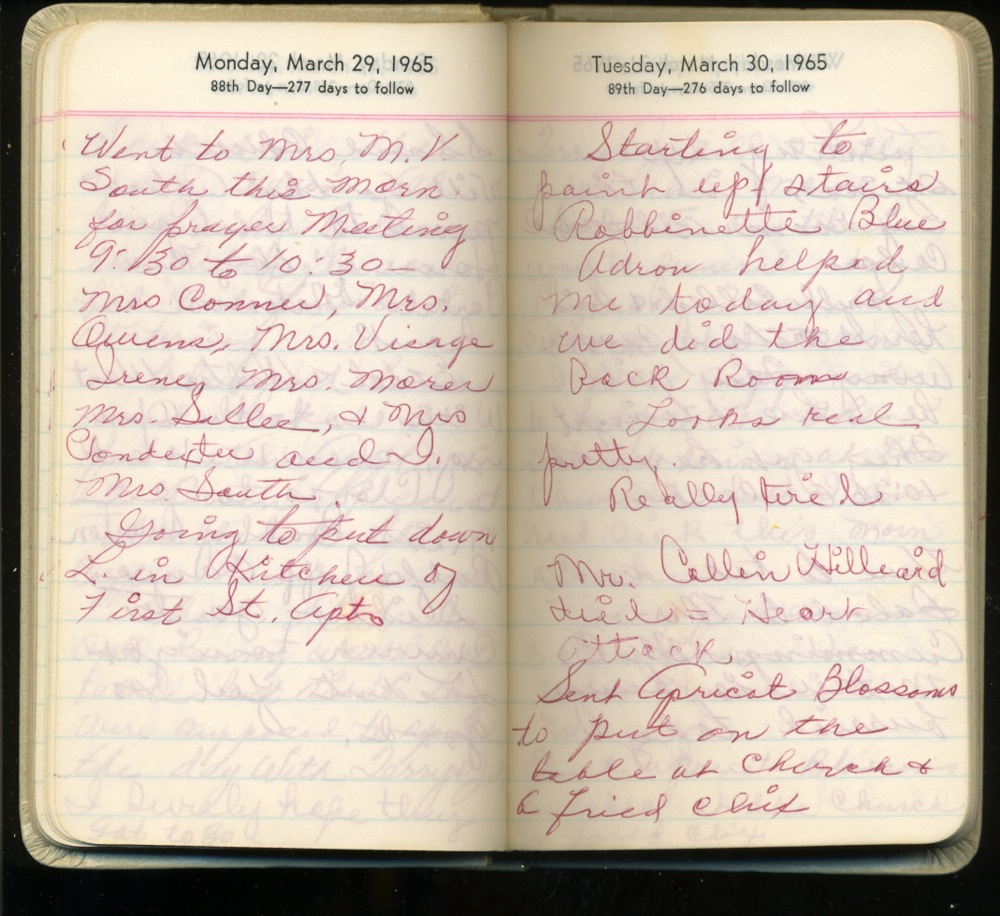 Monday, March 29, 1965
88th Day—277 days to follow
Went to Mrs. M. V.
South this morn
for prayer Meeting
9:30 to 10:30—
Mrs Conner, Mrs.
Owens, Mrs. Visage
Irene, Mrs.
Mrs. Sallee, & Mrs
and I.
Mrs. South.
Going to put down
L. in Kitchen of
First St. Apts
Tuesday, March 30, 1965
89th Day—276 days to follow
Starting to
paint up stairs
Robbinette Blue
Adron helped
me today and
we did the
Back Room
Looks real
pretty.
Really tired
Mr. Collin Hilleard
died = Heart
attack.
Sent Apricot Blossoms
to put on the
table at Church &
a fried chix